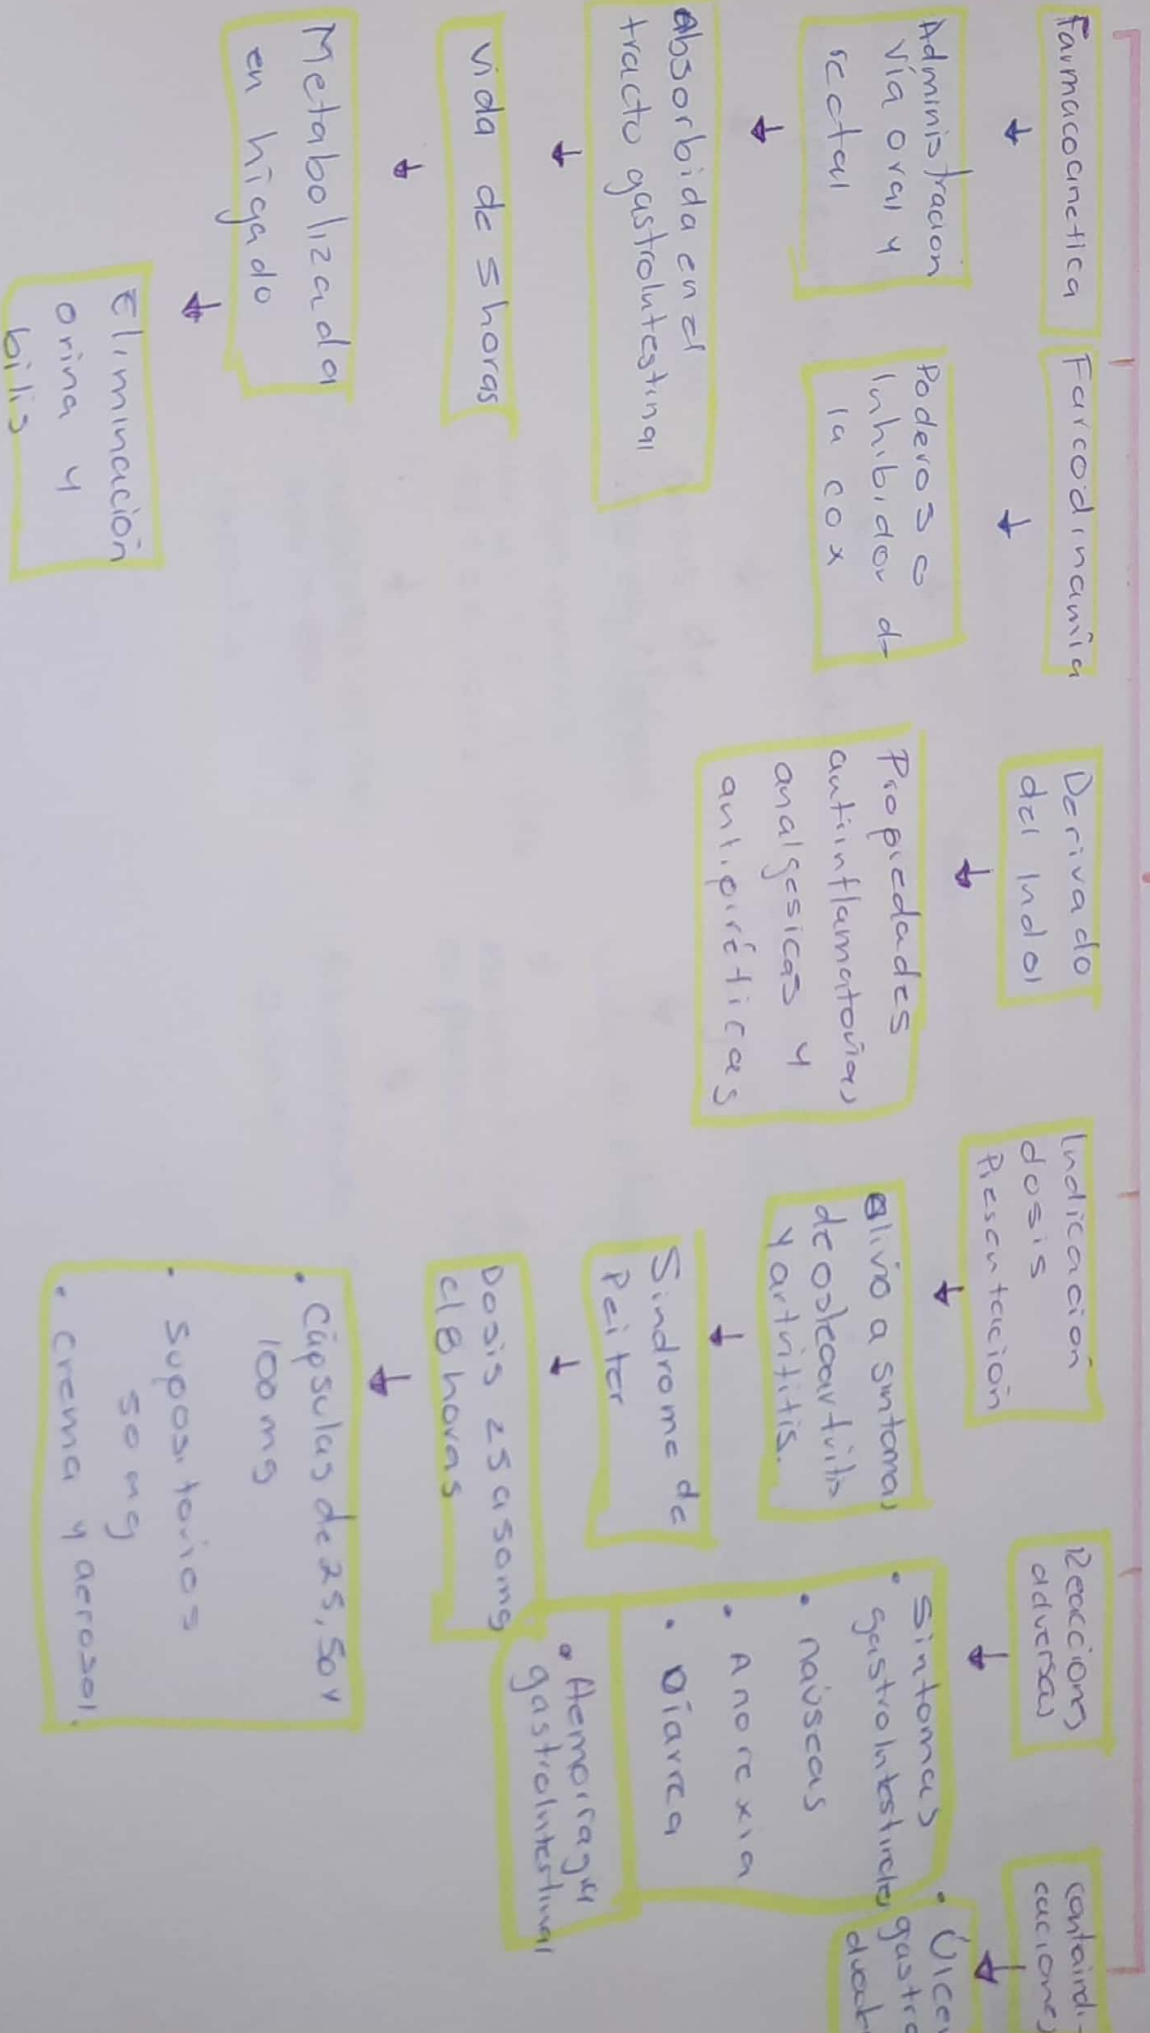 Farmacocinetica
Administracion
vía oral y
rectal
Absorbida en el
tracto gastrointestinal
vida de 5 horas
Metabolizada
en hígado
Eliminación
orina y
bilis
Farcodinamia
Poderoso
Inhibidor de
la cox
Derivado
del Indol
Propiedades
antiinflamatorias
analgesicas y
antipiréticas
Indicación
dosis
Presentación
alivio a sintomas
de osteoartritis
y artritis.
Sindrome de
Reiter
Dosis 25 a 50mg
c/8 horas
• Cápsulas de 25, 50 y
100mg
• Supositorios
50 mg
• crema y aerosol.
Reacciones
adversas
• Sintomas
gastrointestinales
• naúseas
• Anorexia
• Díarrea
• Hemorragia
gastrointestinal
contraindi-
caciones
• Úlce
gastro